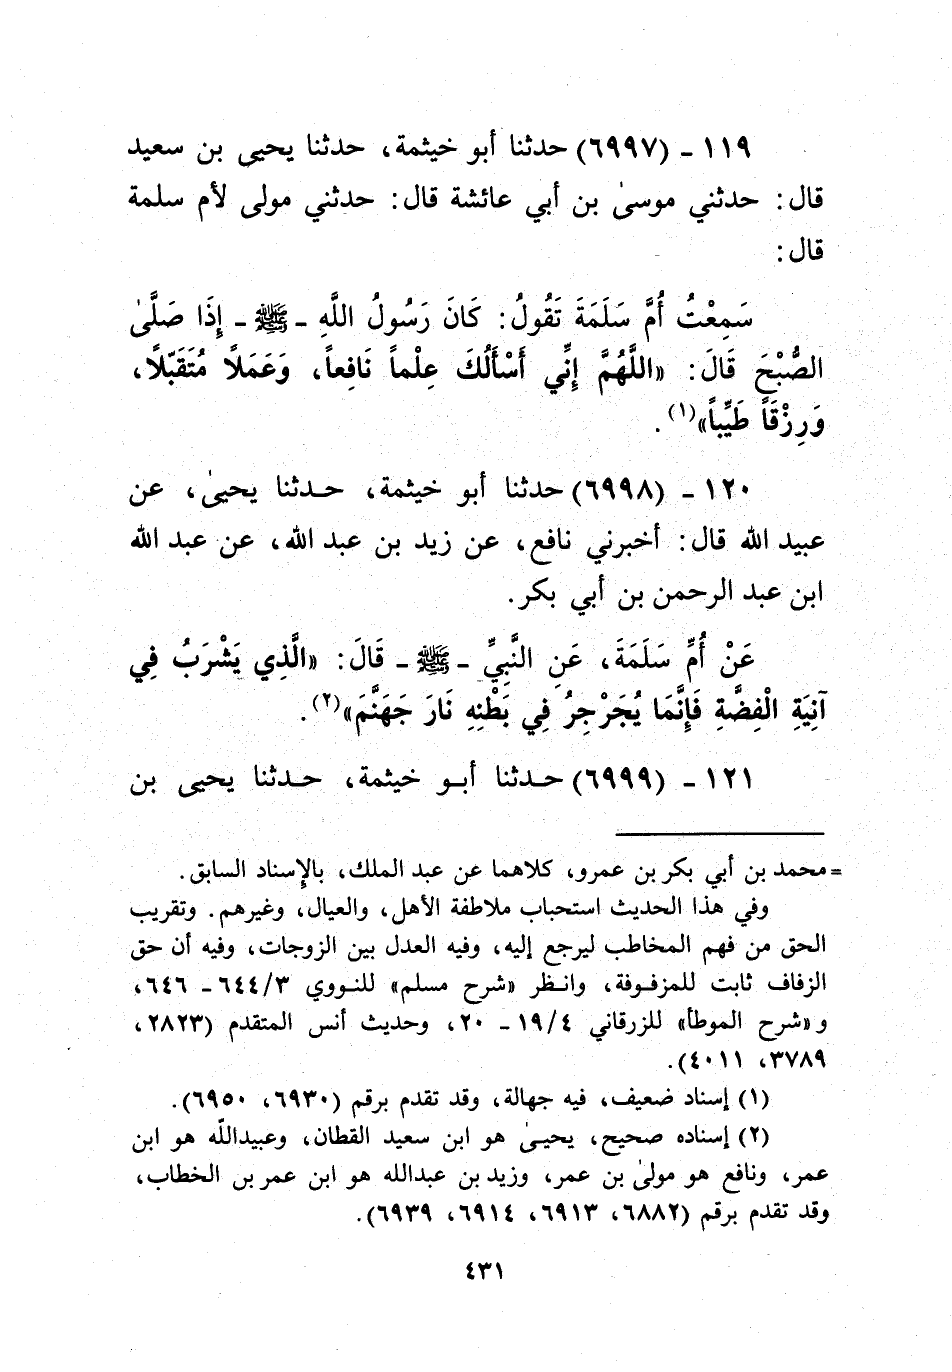 ١١٩ - (٦٩٩٧) حدثنا أبو خيثمة، حدثنا يحيى بن سعيد
قال: حدثني موسىٰ بن أبي عائشة قال: حدثني مولى لأم سلمة
قال:
سَمِعْتُ أُمَّ سَلَمَةَ تَقُولُ: كَانَ رَسُولُ اللَّهِ - ﷺ - إِذَا صَلَّىٰ
الصُّبْحَ قَالَ: «اللَّهُمَّ إِنِّي أَسْأَلُكَ عِلْماً نَافِعاً، وَعَمَلاً مُتَقَبَّلاً،
وَرِزْقَاً طَيِّباً»(١).
١٢٠ - (٦٩٩٨) حدثنا أبو خيثمة، حـدثنا يحيىٰ، عن
عبيد الله قال: أخبرني نافع، عن زيد بن عبد الله، عن عبد الله
ابن عبد الرحمن بن أبي بكر.
عَنْ أُمِّ سَلَمَةَ، عَنِ النَّبِيِّ - ﷺ - قَالَ: «الَّذِي يَشْرَبُ فِي
آنِيَةِ الْفِضَّةِ فَإِنَّمَا يُجَرْجِرُ فِي بَطْنِهِ نَارَ جَهَنَّمَ»(٢).
١٢١ - (٦٩٩٩) حـدثنا أبـو خيثمة، حـدثنا يحيى بن
=محمد بن أبي بكر بن عمرو، كلاهما عن عبد الملك، بالإسناد السابق.
وفي هذا الحديث استحباب ملاطفة الأهل، والعيال، وغيرهم. وتقريب
الحق من فهم المخاطب ليرجع إليه، وفيه العدل بين الزوجات، وفيه أن حق
الزفاف ثابت للمزفـوفة، وانـظر «شرح مسلم» للنـووي ٦٤٤/٣ - ٦٤٦،
و«شرح الموطأ» للزرقاني ١٩/٤ - ٢٠، وحديث أنس المتقدم (٢٨٢٣،
٣٧٨٩، ٤٠١١).
(١) إسناد ضعيف، فيه جهالة، وقد تقدم برقم (٦٩٣٠، ٦٩٥٠).
(٢) إسناده صحيح، يحيـىٰ هو ابن سعيد القطان، وعبيدالله هو ابن
عمر، ونافع هو مولىٰ بن عمر، وزيد بن عبدالله هو ابن عمر بن الخطاب،
وقد تقدم برقم (٦٨٨٢، ٦٩١٣، ٦٩١٤، ٦٩٣٩).
٤٣١